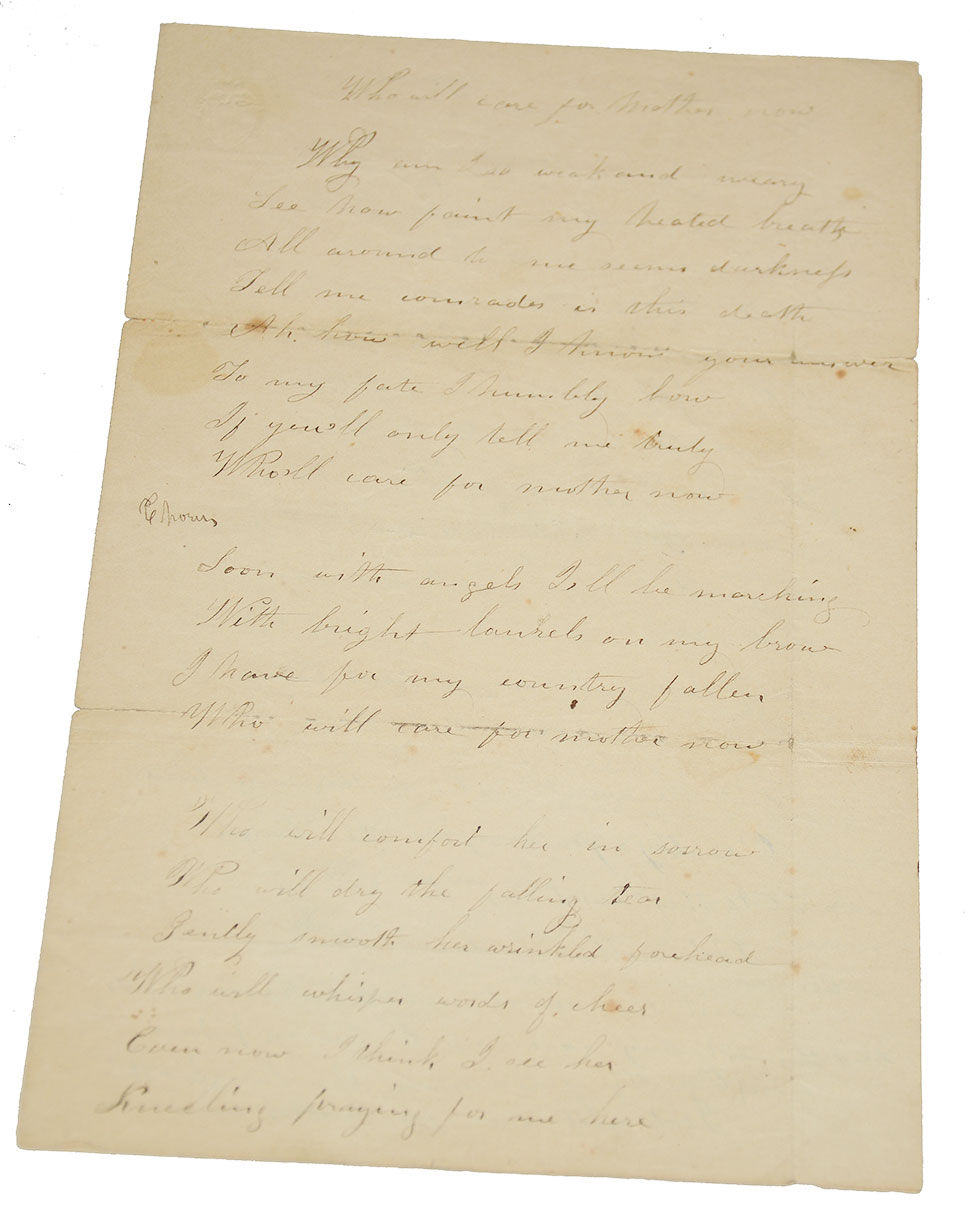 Who will care for Mother now
Why am I so weak and weary
See how faint my heated breath
All around to me seems darkness
Tell me comrades is this death
Ah. how well I know your answer
To my fate I humbly bow
If you'll only tell me truly
Who'll care for mother now
Chorus
Soon with angels I'll be marching
With bright laurels on my brow
I have for my country fallen
Who will care for mother now
Who will comfort her in sorrow
Who will dry the falling tear
Gently smooth her wrinkled forehead
Who will whisper words of cheer
Even now I think I see her
Kneeling praying for me here